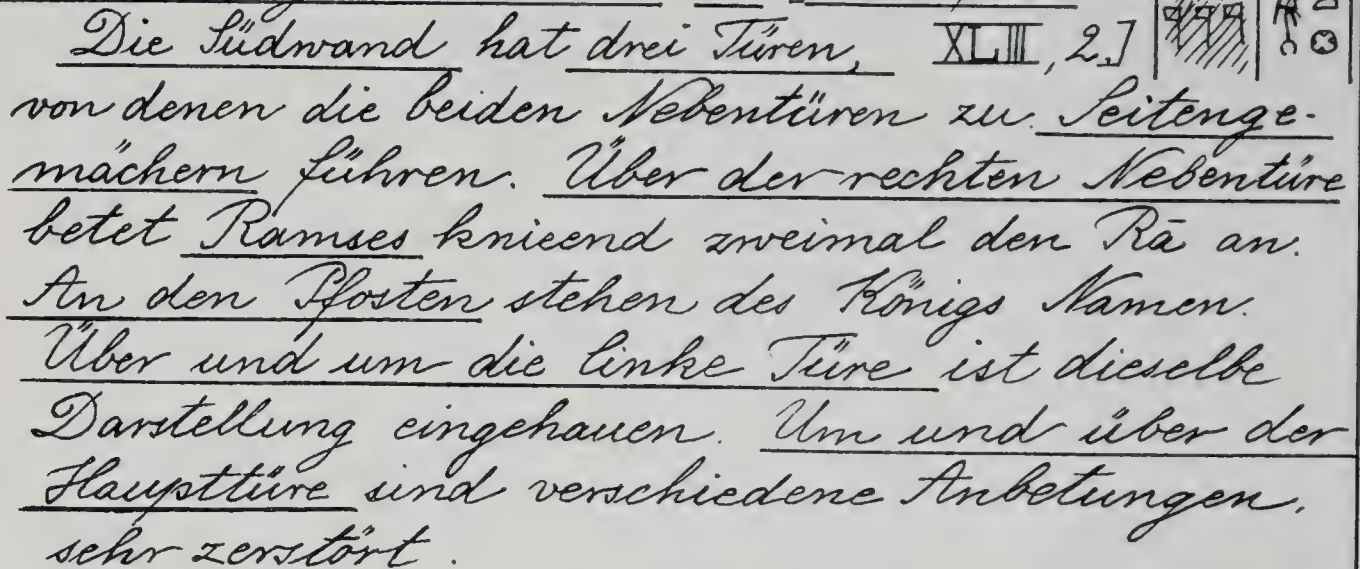 Die Südwand hat drei Türen, XLIII, 2.]
von denen die beiden Nebentüren zu Seitenge-
mächern führen. Über der rechten Nebentüre
betet Ramses knieend zweimal den Rā an.
An den Pfosten stehen des Königs Namen.
Über und um die linke Türe ist dieselbe
Darstellung eingehauen. Um und über der
Haupttüre sind verschiedene Anbetungen,
sehr zerstört.